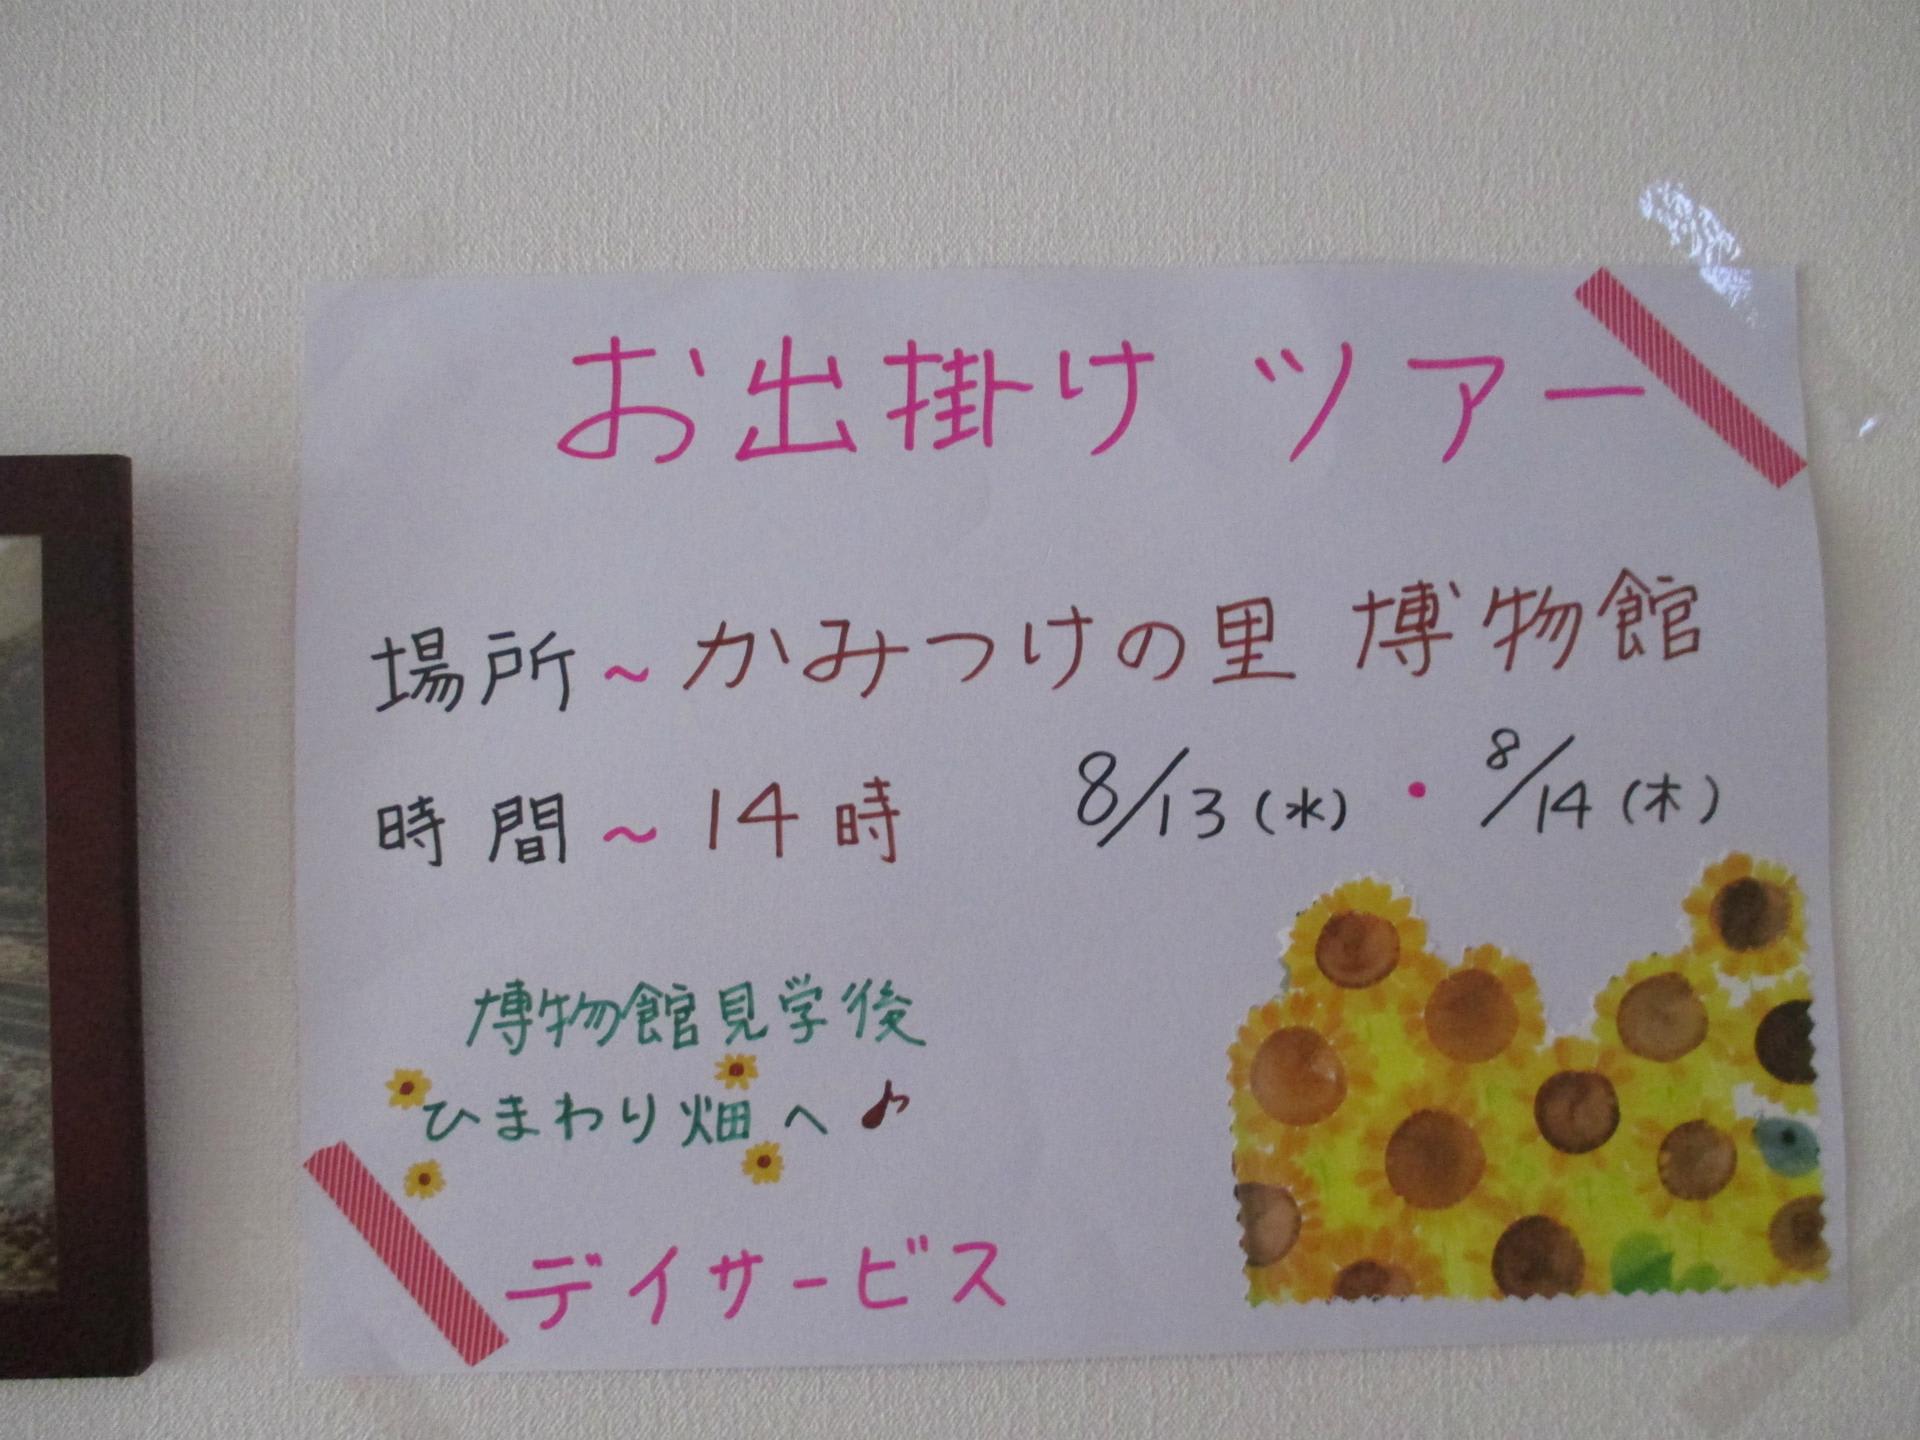 お出掛け ツアー
場所～かみつけの里 博物館
時間～14時 8/13(水)・8/14(木)
博物館見学後
ひまわり畑へ♪
デイサービス